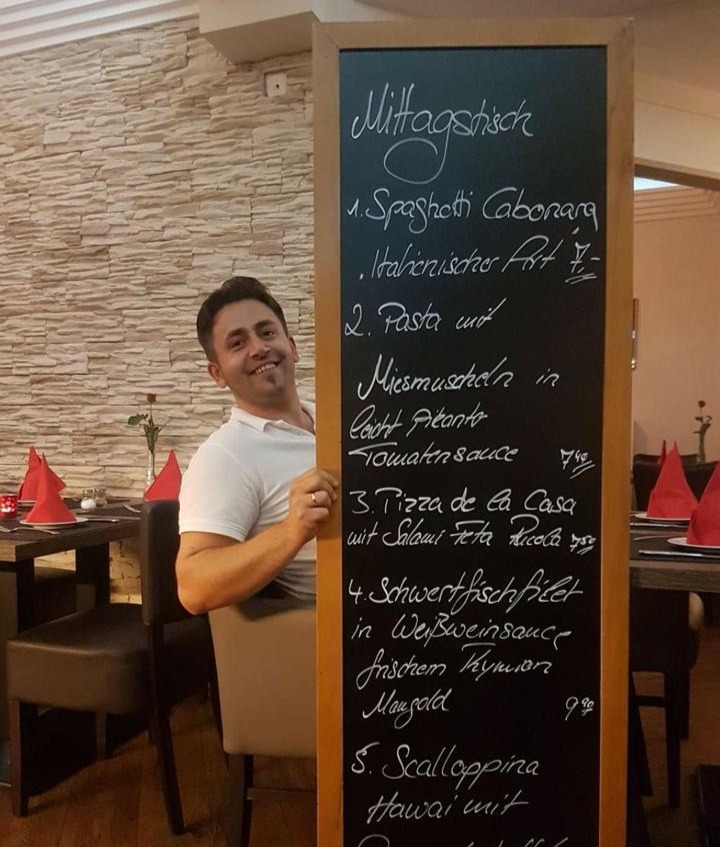 Mittagstisch
1. Spaghetti Cabonara
. Italienischer Art 7,-
2. Pasta mit
Miesmuscheln in
leicht Pikante
Tomatensauce 7,40
3. Pizza de la Casa
mit Salami Feta Rucola 7,50
4. Schwertfischfilet
in Weißweinsauce
frischem Thymian
Mangold 9,90
5. Scalloppina
Hawai mit